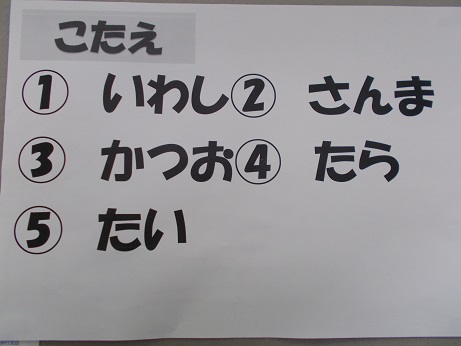 こたえ
① いわし② さんま
③ かつお④ たら
⑤ たい